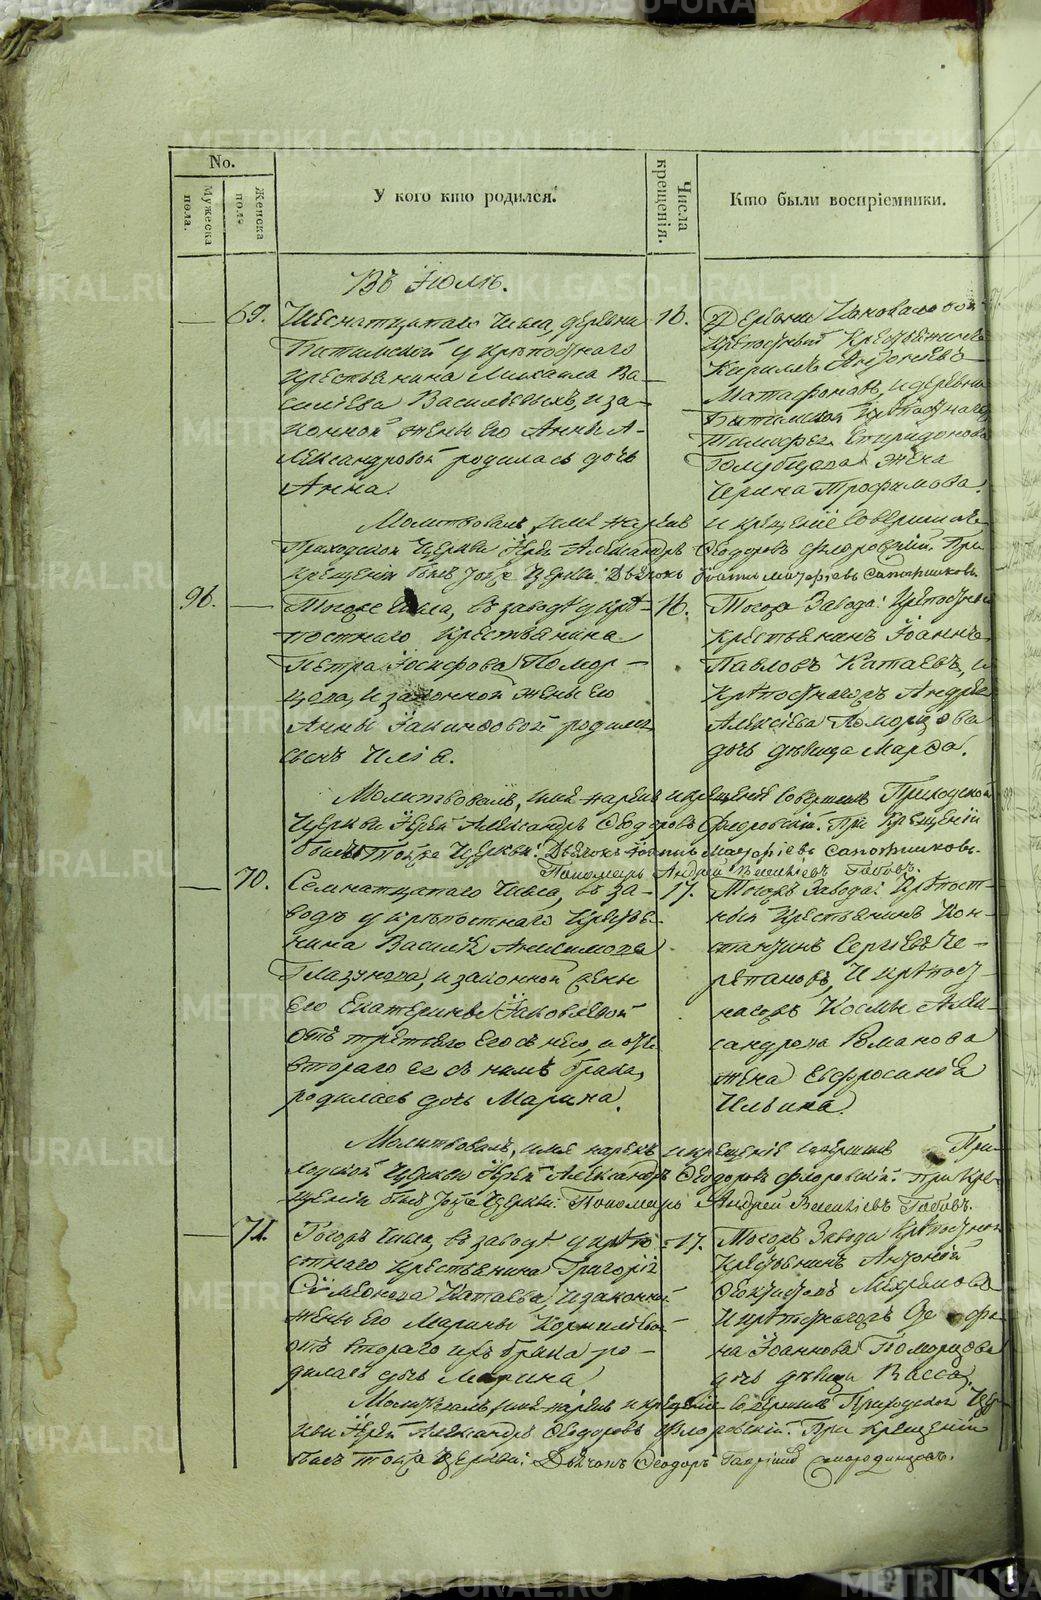 No.
Мужеска пола.
Женска пола
У кого кто родился.
Числа крещенія.
Кто были воспріемники.
Въ Іюлѣ.
69. Шеснатцатаго Числа, деревни
Битимской у крѣпостнаго
крестьянина Михаила Ва-
сильева Васильевыхъ, и за-
конной жены его Анны А-
лександровой родилась дочь
Анна.
16. Деревни
крѣпостный Крестьянинъ
Кирилъ Антоніевъ
Матафоновъ, и деревни
Битимской Крѣпостнаго
Тимофея Спиридонова
Голубцова жена
Ирина Трофимова.
Молитвовалъ, имя нарекъ и крещеніе Совершилъ
Приходской Церкви Іерей Александръ Ѳеодоровъ Флоровскій. При
крещеніи былъ тойже Церкви: Дьячокъ Іоаннъ Сапожниковъ
96. Тогоже Числа, въ заводѣ у крѣ-
постнаго Крестьянина
Петра Іосифова Помор-
цова, и законной жены его
Анны Іакинфовой родился
сынъ Илія.
16. Тогоже Завода: Крѣпостный
крестьянинъ Іоаннъ
Павловъ Катаевъ, и
Крѣпостнагожъ Андрея
Алексіева Поморцова
дочь дѣвица Марѳа.
Молитвовалъ, имя нарекъ и крещеніе Совершилъ Приходской
Церкви Іерей Александръ Ѳеодоровъ Флоровскій. При Крещеніи
были Тойже Церкви: Дьячокъ Іоаннъ Сапожниковъ
Пономарь Андрей Васильевъ
70. Семнатцатаго Числа, въ за-
водѣ у крѣпостнаго Крестья-
нина Василія Анисимова
Глазунова, и законной жены
его Екатерины Іаковлевой
отъ третьяго его съ нею, и отъ
втораго ее съ нимъ брака,
родилась дочь Марина.
17. Тогожъ Завода: Крѣпост-
ный Крестьянинъ Кон-
стантинъ Сергіевъ Че-
репановъ, и крѣпост-
нагожъ Космы Алек-
сандрова Романова
жена Евфросинія
Ильина.
Молитвовалъ, имя нарекъ и крещеніе совершилъ При-
ходской Церкви Іерей Александръ Ѳеодоровъ Флоровскій. При Кре-
щеніи былъ тойже Церкви: Пономарь Андрей Васильевъ
71. Тогожъ Числа, въ заводѣ у крѣпо-
стнаго крестьянина Григорія
Сѵмеонова Катаева, и законной
жены его Марины Корнильевой
отъ втораго ихъ брака ро-
дилась дочь Марина
17. Тогожъ Завода Крѣпостной
Крестьянинъ Антоній
Ѳеоктистовъ
и крѣпостнагожъ Сте-фа-
на Іоаннова Поморцова
дочь дѣвица Васса.
Молитвовалъ, имя нарекъ и крещеніе Совершилъ Приходской Цер-
кви Іерей Александръ Ѳеодоровъ Флоровскій. При Крещеніи
былъ Тойже Церкви: Дьячокъ Ѳеодоръ Смородинцовъ.
METRIKI.GASO-URAL.RU